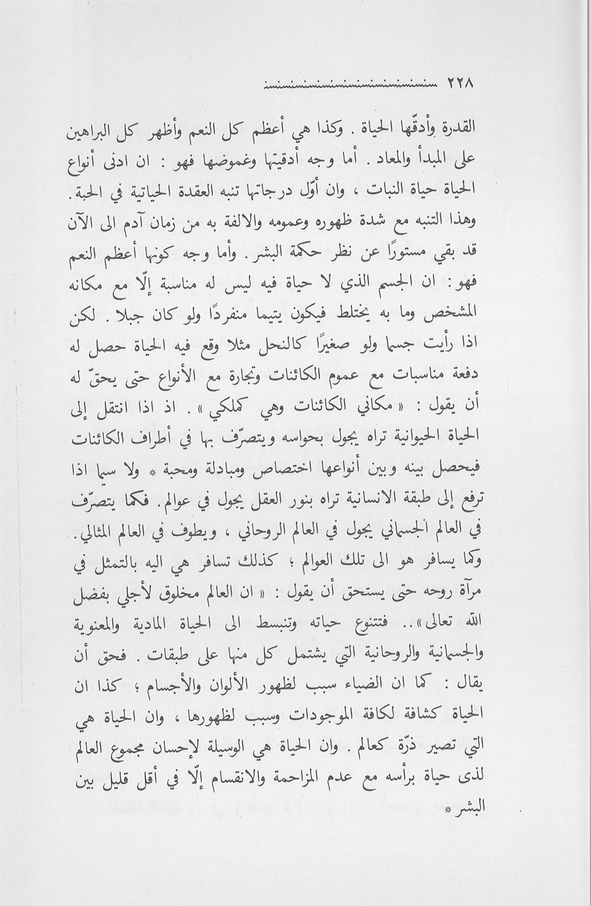 ٢٢٨
القدرة وأدقّها الحياة . وكذا هي أعظم كل النعم وأظهر كل البراهين
على المبدأ والمعاد . أما وجه أدقيتها وغموضها فهو : ان ادنى أنواع
الحياة حياة النبات ، وان أوّل درجاتها تنبه العقدة الحياتية في الحبة .
وهذا التنبه مع شدة ظهوره وعمومه والالفة به من زمان آدم الى الآن
قد بقي مستورًا عن نظر حكمة البشر . وأما وجه كونها أعظم النعم
فهو : ان الجسم الذي لا حياة فيه ليس له مناسبة إلّا مع مكانه
المشخص وما به يختلط فيكون يتيما منفردًا ولو كان جبلا . لكن
اذا رأيت جسما ولو صغيرًا كالنحل مثلا وقع فيه الحياة حصل له
دفعة مناسبات مع عموم الكائنات وتجارة مع الأنواع حتى يحقّ له
أن يقول : « مكاني الكائنات وهي كملكي » . اذ اذا انتقل إلى
الحياة الحيوانية تراه يجول بحواسه ويتصرّف بها في أطراف الكائنات
فيحصل بينه وبين أنواعها اختصاص ومبادلة ومحبة * ولا سيما اذا
ترفع إلى طبقة الانسانية تراه بنور العقل يجول في عوالم . فكما يتصرّف
في العالم الجسماني يجول في العالم الروحاني ، ويطوف في العالم المثالي .
وكما يسافر هو الى تلك العوالم ؛ كذلك تسافر هي اليه بالتمثل في
مرآة روحه حتى يستحق أن يقول : « ان العالم مخلوق لأجلي بفضل
الله تعالى » .. فتتنوع حياته وتنبسط الى الحياة المادية والمعنوية
والجسمانية والروحانية التي يشتمل كل منها على طبقات . فحق أن
يقال : كما ان الضياء سبب لظهور الألوان والأجسام ؛ كذا ان
الحياة كشافة لكافة الموجودات وسبب لظهورها ، وان الحياة هي
التي تصير ذرّة كعالم . وان الحياة هي الوسيلة لإحسان مجموع العالم
لذى حياة برأسه مع عدم المزاحمة والانقسام إلّا في أقل قليل بين
البشر *